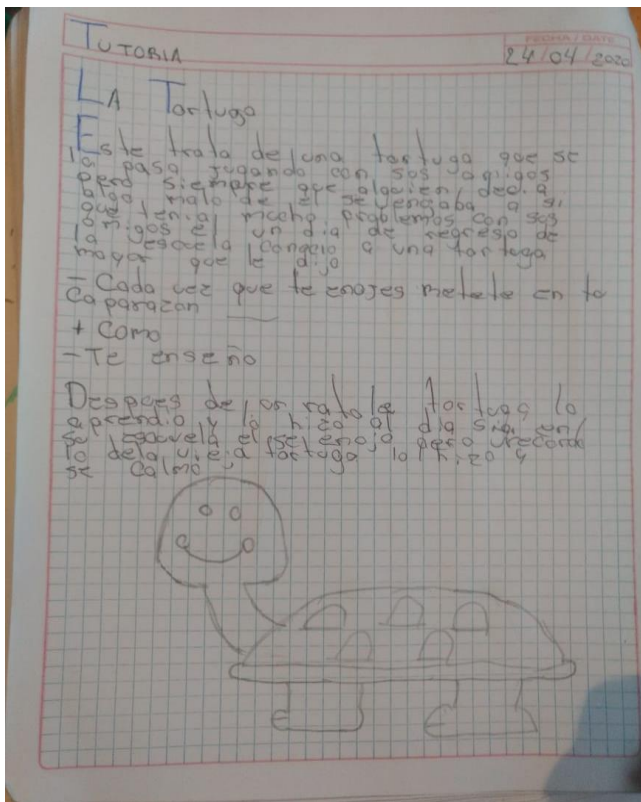 TUTORIA
FECHA/DATE
24/04/2020
LA Tortuga
Este trata de una tortuga que se
la paso jugando con sus amigos
pero siempre que alguien decia
algo malo de el se enojaba a si
que tenia mucho problemas con sus
amigos el un dia de regreso de
la escuela conocio a una tortuga
mayor que le dijo
- Cada vez que te enojes metete en tu
caparazon
+ Como
- Te enseño
Despues de un rato la tortuga lo
aprendio y lo hizo al dia sig. en
su escuela el se enojo pero recordo
lo de la vieja tortuga lo hizo y
se calmo